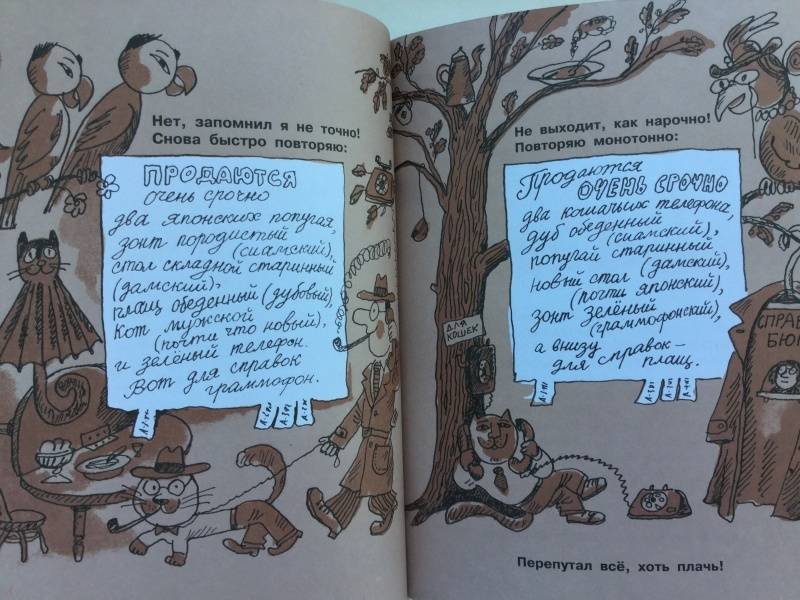 Нет, запомнил я не точно!
Снова быстро повторяю:
ПРОДАЮТСЯ
очень срочно
два японских попугая,
зонт породистый
(сиамский),
стол складной старинный
(дамский),
плащ обеденный (дубовый),
Кот мужской
(почти что новый),
и зелёный телефон.
Вот для справок
граммофон.
Не выходит, как нарочно!
Повторяю монотонно:
Продаются
ОЧЕНЬ СРОЧНО
два кошачьих телефона,
дуб обеденный
(сиамский),
попугай старинный
(дамский),
новый стол
(почти японский),
зонт зелёный
(граммофонский),
а внизу
для справок –
плащ.
ДЛЯ
КОШЕК
СПРАВ
БЮР
Перепутал всё, хоть плачь!